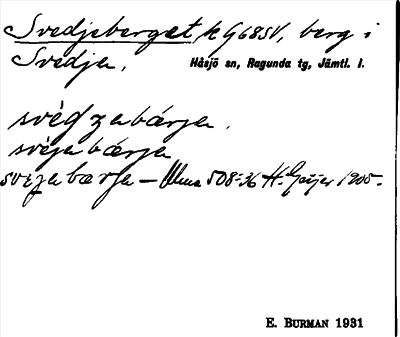 Svedjeberget, k G68SV, berg i
Svedja.
Håsjö sn, Ragunda tg, Jämtl. l.
svèdzabárja.
svèjabárja
svezabarja — Ulma 508:36 H. Geijer 1905.
E. BURMAN 1931